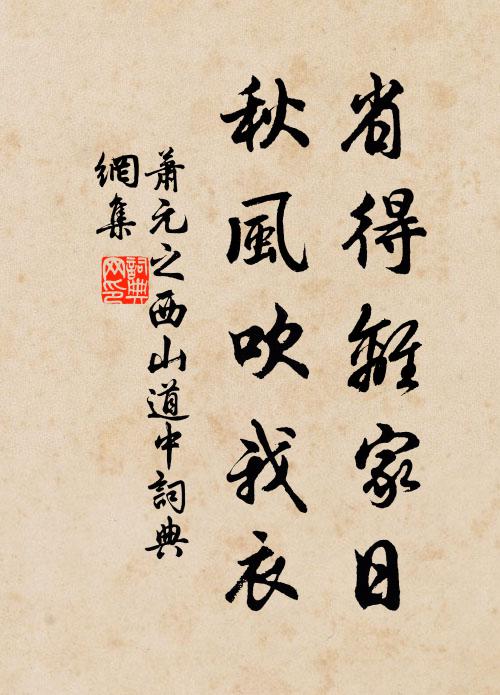 省得離家日
秋風吹我衣
蕭元之西山道中詞典
網集
詞典網印